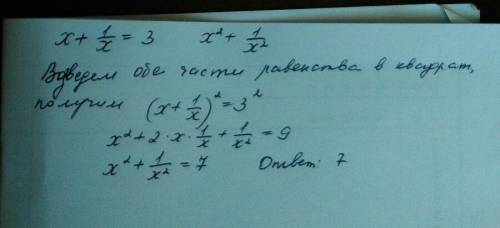 x + 1/x = 3    x² + 1/x²
Возведем обе части равенства в квадрат,
получим (x + 1/x)² = 3²
x² + 2 · x · 1/x + 1/x² = 9
x² + 1/x² = 7    Ответ: 7